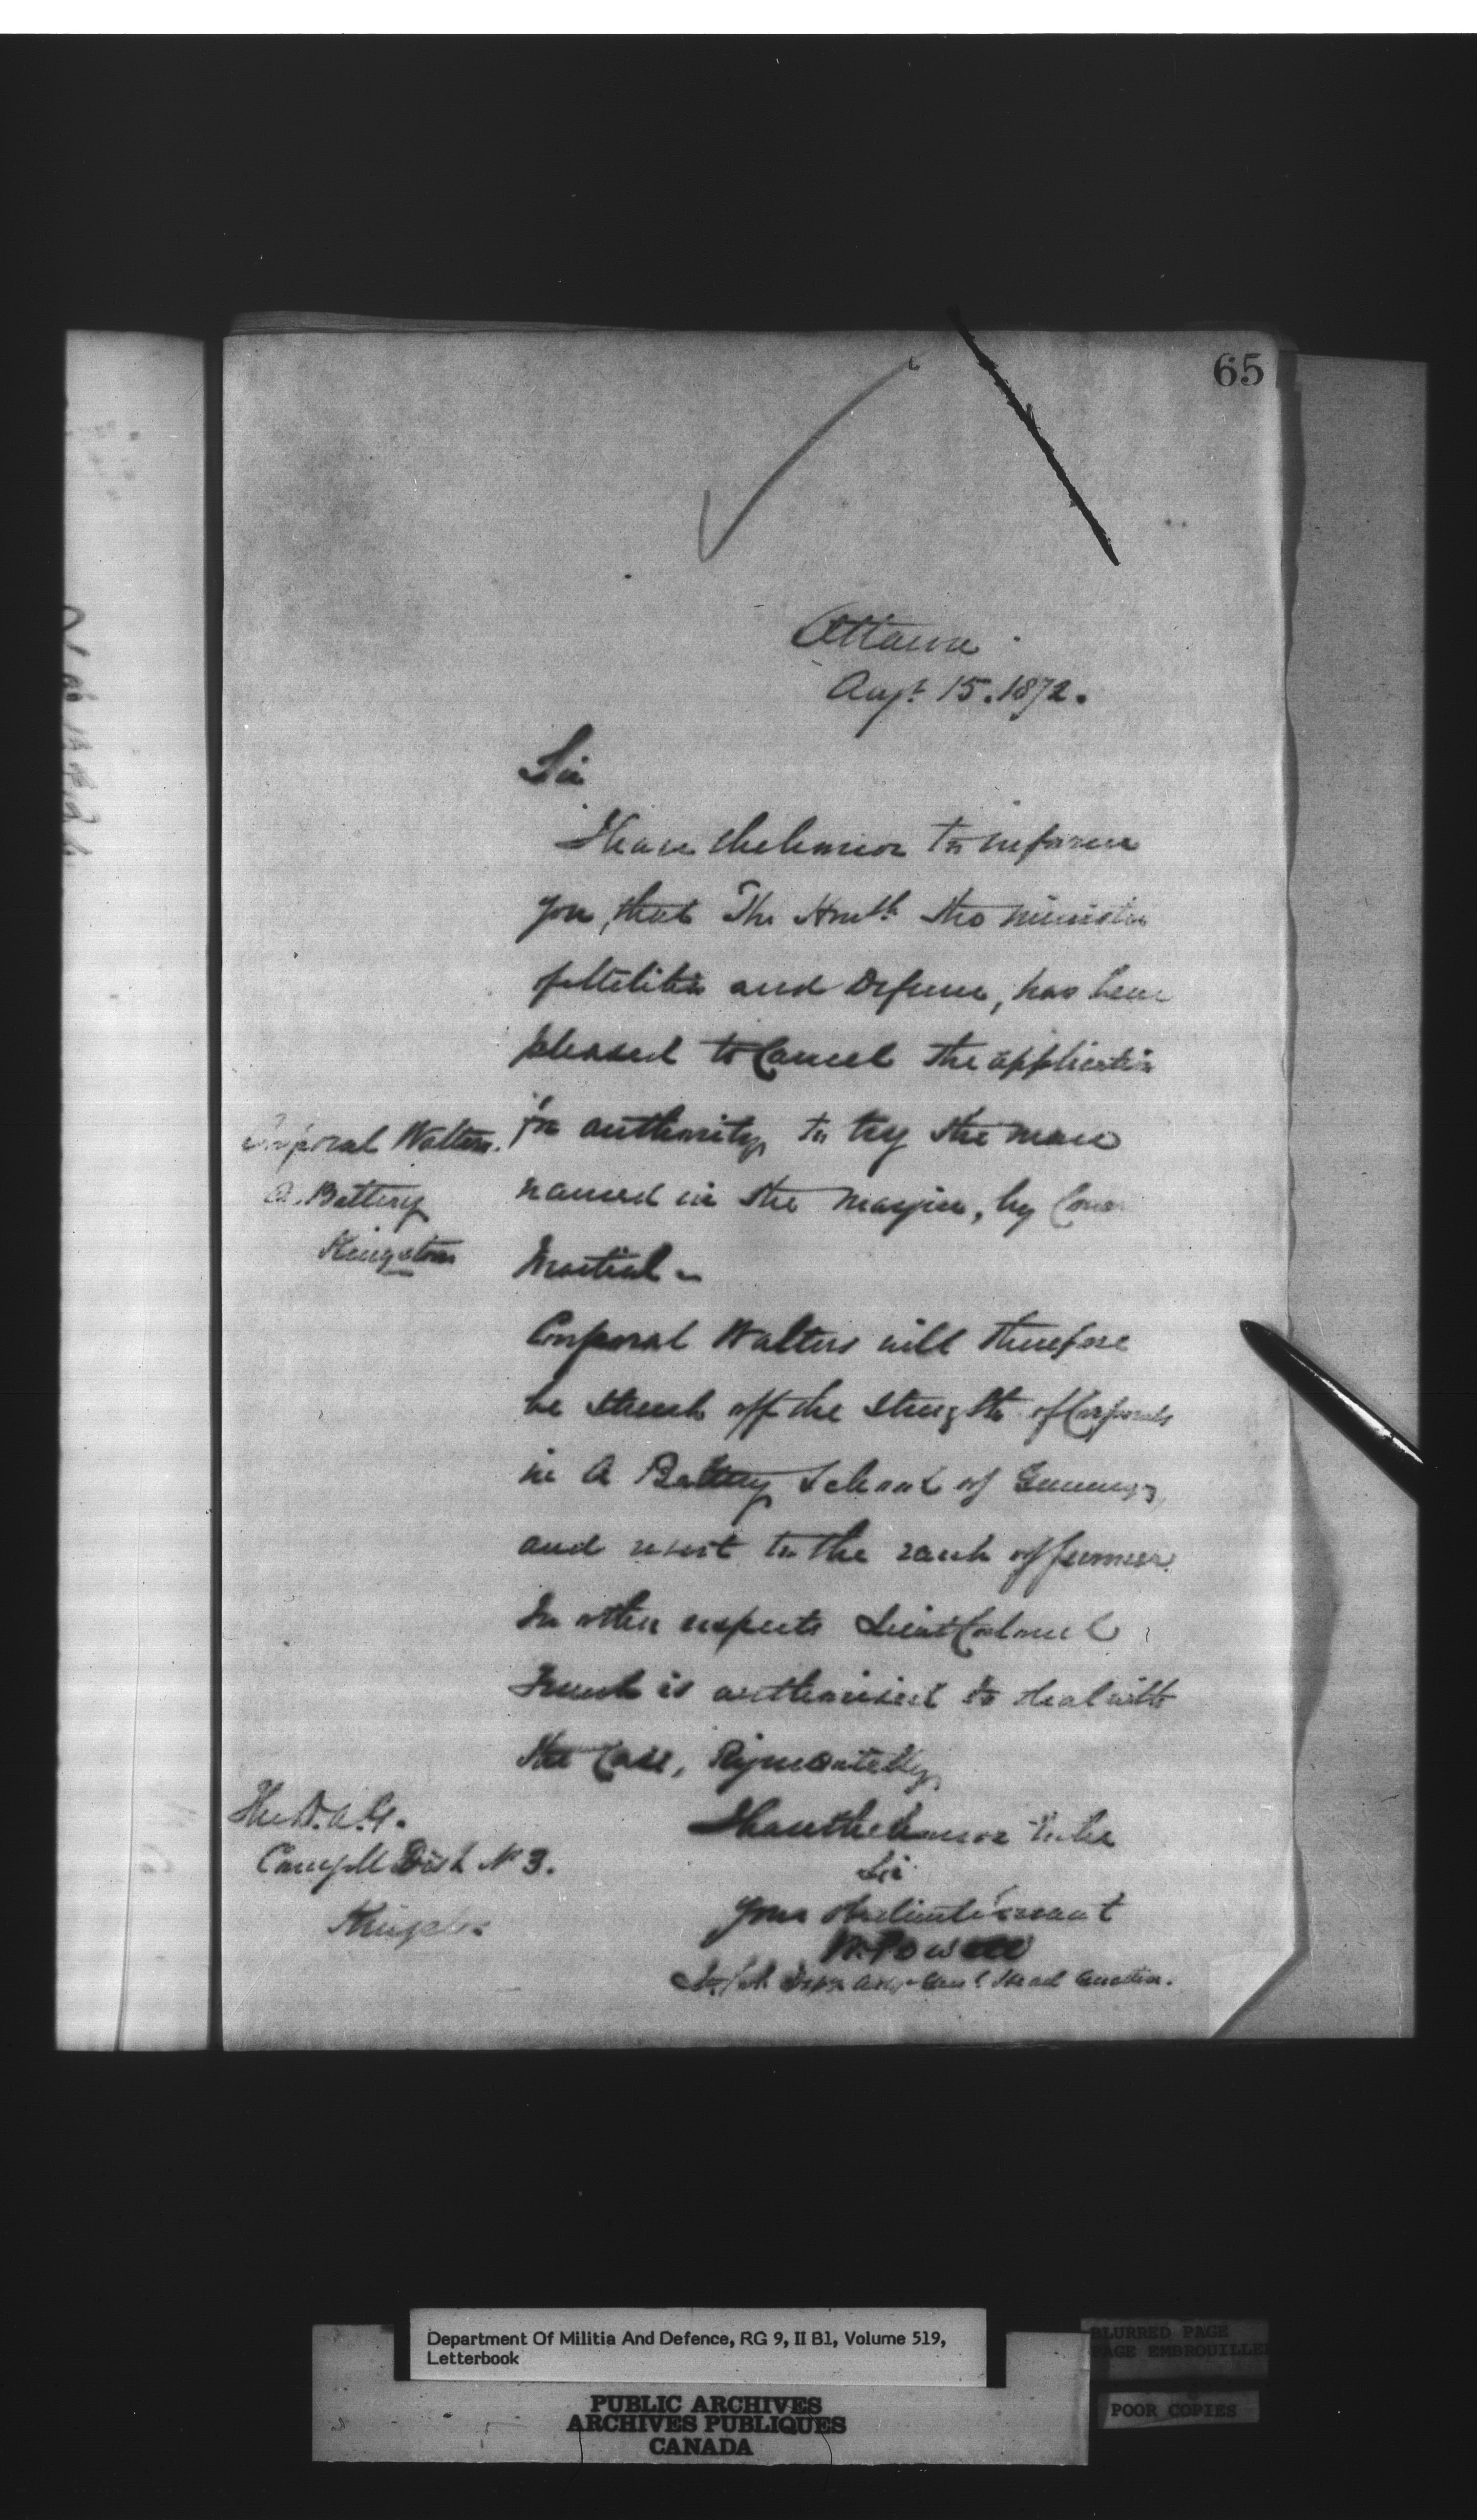 65
Ottawa
Augt 15. 1872.
Sir
I have the honor to inform
you, that The Honbl the Minister
of Militia and Defence, has been
pleased to Cancel the application
for authority, to try the man
named in the Margin, by Court
Martial -
Corporal Walters.
A. Battery
Kingston
Corporal Walters will therefore
be struck off the strength of Corporals
in A Battery School of Gunnery,
and revert to the rank of Gunner.
In other respects Lieut Colonel
French is authorised to deal with
the Case, Regimentally,
I have the honor to be
Sir
Your obedient servant
W. Powell
Dep. Adjt Genl Head Quarters.
The D.A.G.
Comg Ml Dist No 3.
Kingston
Department Of Militia And Defence, RG 9, II B1, Volume 519,
Letterbook
BLURRED PAGE
PAGE EMBROUILLE
POOR COPIES
PUBLIC ARCHIVES
ARCHIVES PUBLIQUES
CANADA